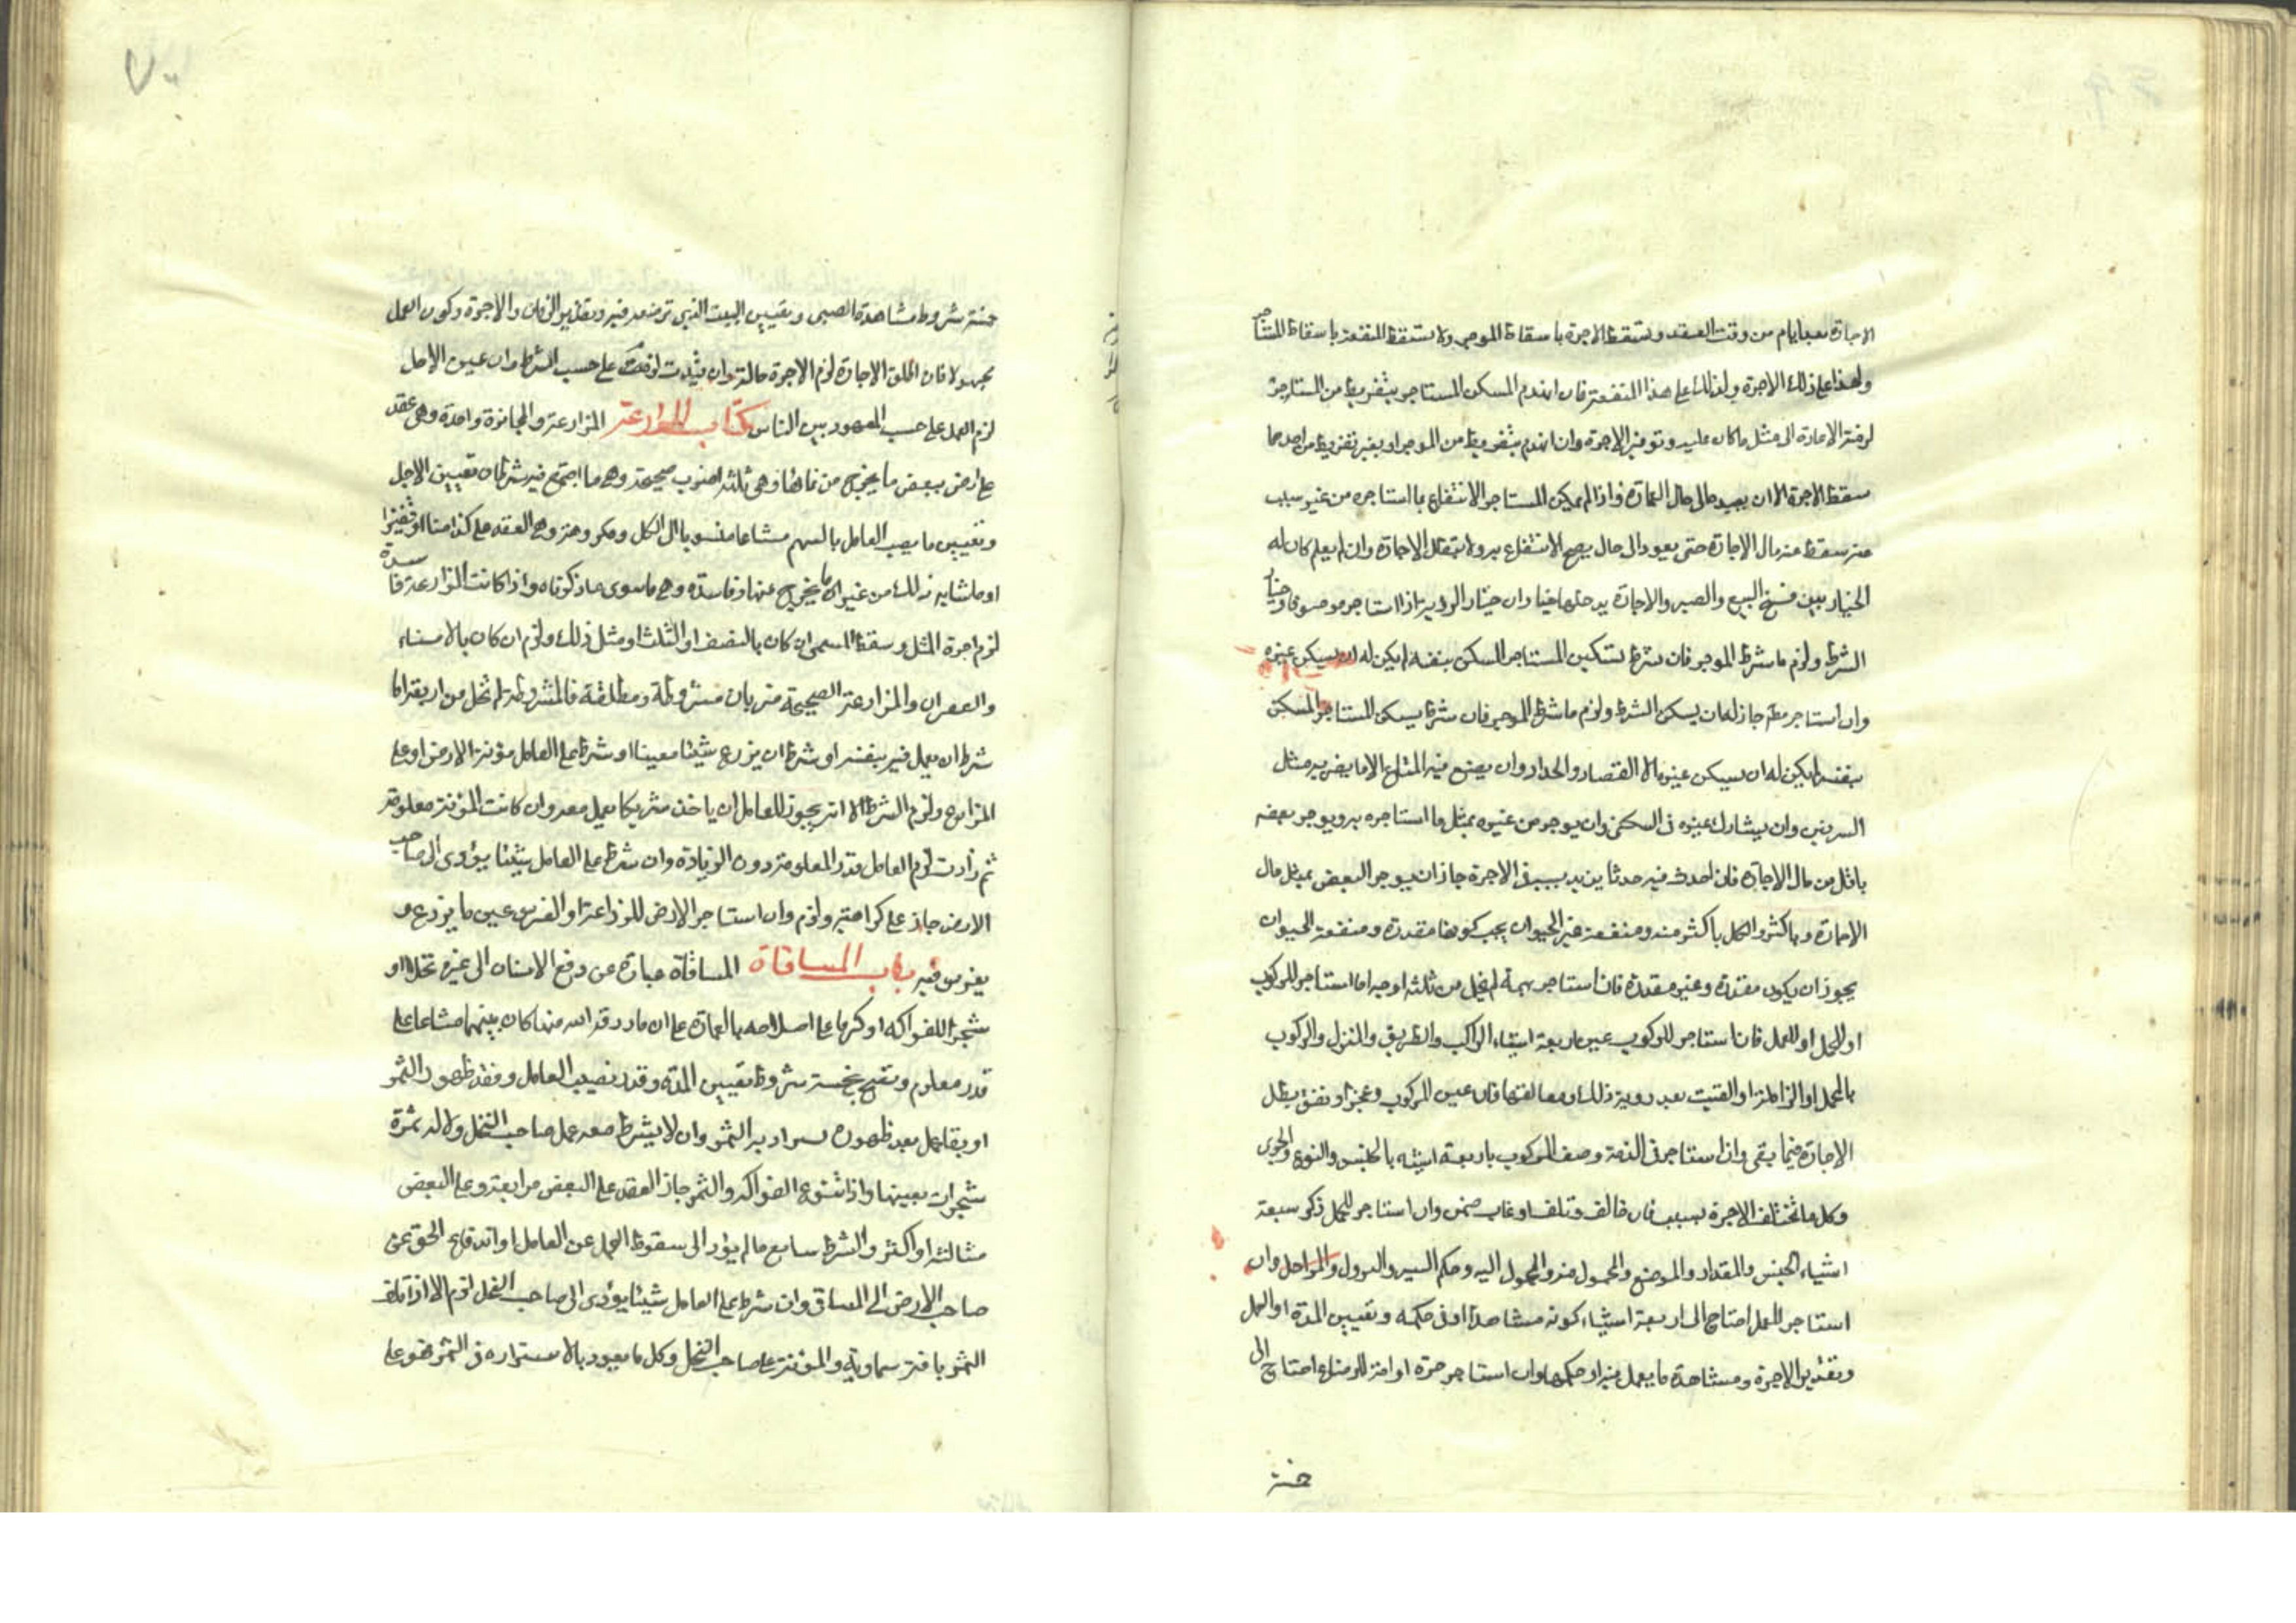 الاجارة بعد ايام من وقت العقد وتسقط الاجرة باسقاط الموجر ولا تسقط المنفعة باسقاط المستاجر
الاجرة فان انهدم المسكن المستاجر بتفريط من المستاجر
لزمته الاعادة الى مثل ما كان عليه وتوفير الاجرة وان انهدم بتفريط من الموجر او بغير تفريط من احدهما
سقط الاجرة الا ان يعيده الى حال العمارة واذا لم يمكن المستاجر الانتفاع بما استاجره من غير سبب
منه سقط عنه مال الاجارة حتى يعود الى حال يصح الانتفاع به ولا ينتقل الاجارة وان لم يعلم كان له
الخيار بين فسخ البيع والصبر والاجارة يدخلها خياران خيار الروية اذا استاجر موصوفا وخيار
الشرط ولزم ما شرط الموجر فان شرط تسكين المستاجر المسكن بنفسه لم يكن له ان يسكن غيره
وان استاجر مطلقا جاز له ان يسكن الشرط ولزم ما شرط الموجر فان شرط يسكن المستاجر المسكن
بنفسه لم يكن له ان يسكن غيره الا القصار والحداد وان يصنع فيه المتاع الا ما يضر به مثل
السرقين وان يشارك غيره في السكنى وان يوجر من غيره بمثل ما استاجره به ويوجر بعضه
باقل من مال الاجارة فان احدث فيه حدثا يزيد بسببه في الاجرة جاز ان يوجر البعض بمثل مال
الاجارة وباكثر والكل باكثر منه ومنفعة غير الحيوان يجب كونها مقدرة ومنفعة الحيوان
يجوز ان يكون مقدرة وغير مقدرة فان استاجر بهيمة لم يخل من ثلثة اوجه اما استاجر للركوب
او للحمل او للعمل فان استاجر للركوب عين اربعة اشياء الراكب والطريق والمنزل والركوب
بالمحمل او الزاملة او القتب بعد روية ذلك فان عين المركوب وعجز او نفق بطل
الاجارة فيما بقي وان استاجر في الذمة وصف المركوب باربعة اشياء بالجنس والنوع
وكل ما تختلف الاجرة بسببه فان خالف وتلف او عاب ضمن وان استاجر للحمل ذكر سبعة
اشياء الجنس والمقدار والموضع والمحمول منه والمحمول اليه وحكم السير والنزول والمراحل وان
استاجر للعمل احتاج الى اربعة اشياء كونه مشاهدا او في حكمه وتعيين المدة او العمل
وتقدير الاجرة ومشاهدة ما يعمل فيه او حكمها وان استاجر حرة او امة للرضاع احتاج الى
خمسة
٧٠
خمسة شروط مشاهدة الصبي وتعيين البيت الذي ترضعه فيه وتقدير الزمان والاجرة وكون العمل
مجهولا فان اطلق الاجارة لزم الاجرة حالة وان قيدت لزمت على حسب الشرط وان عين الاجل
لزم العمل على حسب المعهود بين الناس كتاب المزارعة المزارعة والمخابرة واحدة وهي عقد
على ارض ببعض ما يخرج من نمائها وهي ثلثة اضرب صحيحة وهي ما اجتمع فيه شرطان تعيين الاجل
وتعيين ما يصيب العامل بالسهم مشاعا منسوبا الى الكل ومكروهة وهي العقد على كذا منا او قفيزا
او ما شابه ذلك من غير ما يخرج عنها وفاسدة وهي ما سوى ما ذكرناه واذا كانت المزارعة فاسدة
لزم اجرة المثل وسقط المسمى ان كان بالنصف او الثلث او مثل ذلك ولزم ان كان بالامناء
والقفزان والمزارعة الصحيحة ضربان مشروطة ومطلقة فالمشروطة لم تخل من اربعة اما
شرط ان يعمل فيه بنفسه او شرط ان يزرع شيئا معينا او شرط على العامل مؤنة الارض او على
المزارع ولزم الشرط الا انه يجوز للعامل ان ياخذ شريكا يعمل معه وان كانت المؤنة معلومة
ثم زادت لزم العامل قدر المعلومة دون الزيادة وان شرط على العامل شيئا يؤدي الى صاحب
الارض جاز على كراهية ولزم وان استاجر الارض للزراعة او الغرس عين ما يزرع و
يغرس فيه باب المساقاة المساقاة عبارة عن دفع الانسان الى غيره نخلا او
شجر الفواكه او كرما على اصلاحه بالعمارة على ان ما رزقه الله منها كان بينهما مشاعا على
قدر معلوم وتصح بخمسة شروط تعيين المدة وقدر نصيب العامل وفقد ظهور الثمر
او بقاء عمل بعد ظهوره وان لا يشرط معه عمل صاحب النخل ولا له ثمرة
شجرات بعينها واذا تنوع الفواكه والثمر جاز العقد على البعض مرابعة وعلى البعض
مثالثة او اكثر والشرط سايغ ما لم يؤد الى سقوط العمل عن العامل
صاحب الارض الى المساقي وان شرط على العامل شيئا يؤدي الى صاحب النخل لزم الا اذا تلف
الثمر بافة سماوية والمؤنة على صاحب النخل وكل ما يعود بالاستزاده في الثمر فهو على